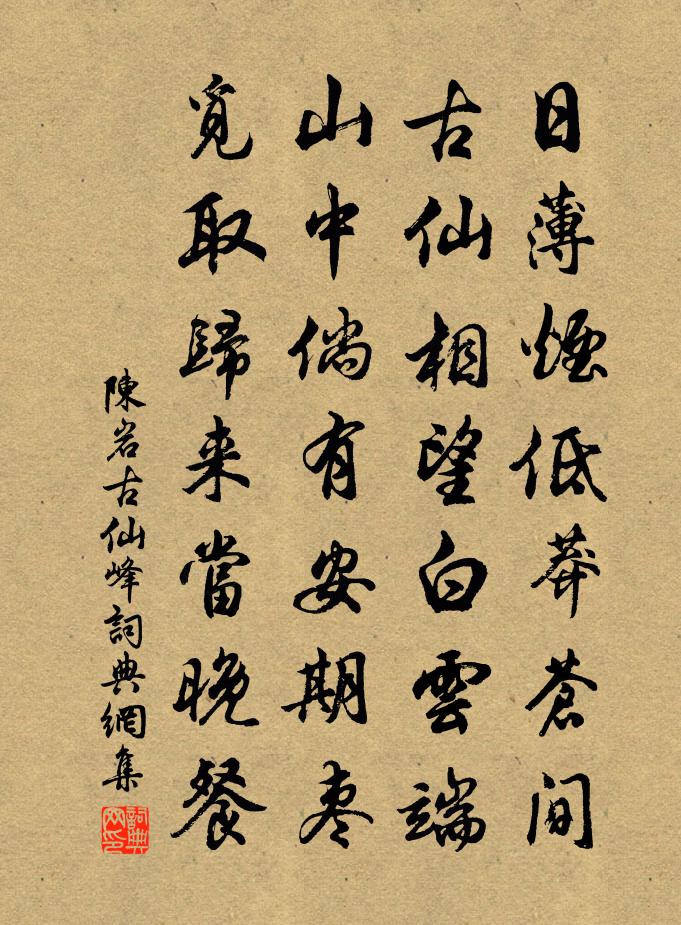 日薄煙低莽蒼間
古仙相望白雲端
山中倘有安期枣
覓取歸来當晚餐
陳岩古仙峰詞典網集
詞典网印